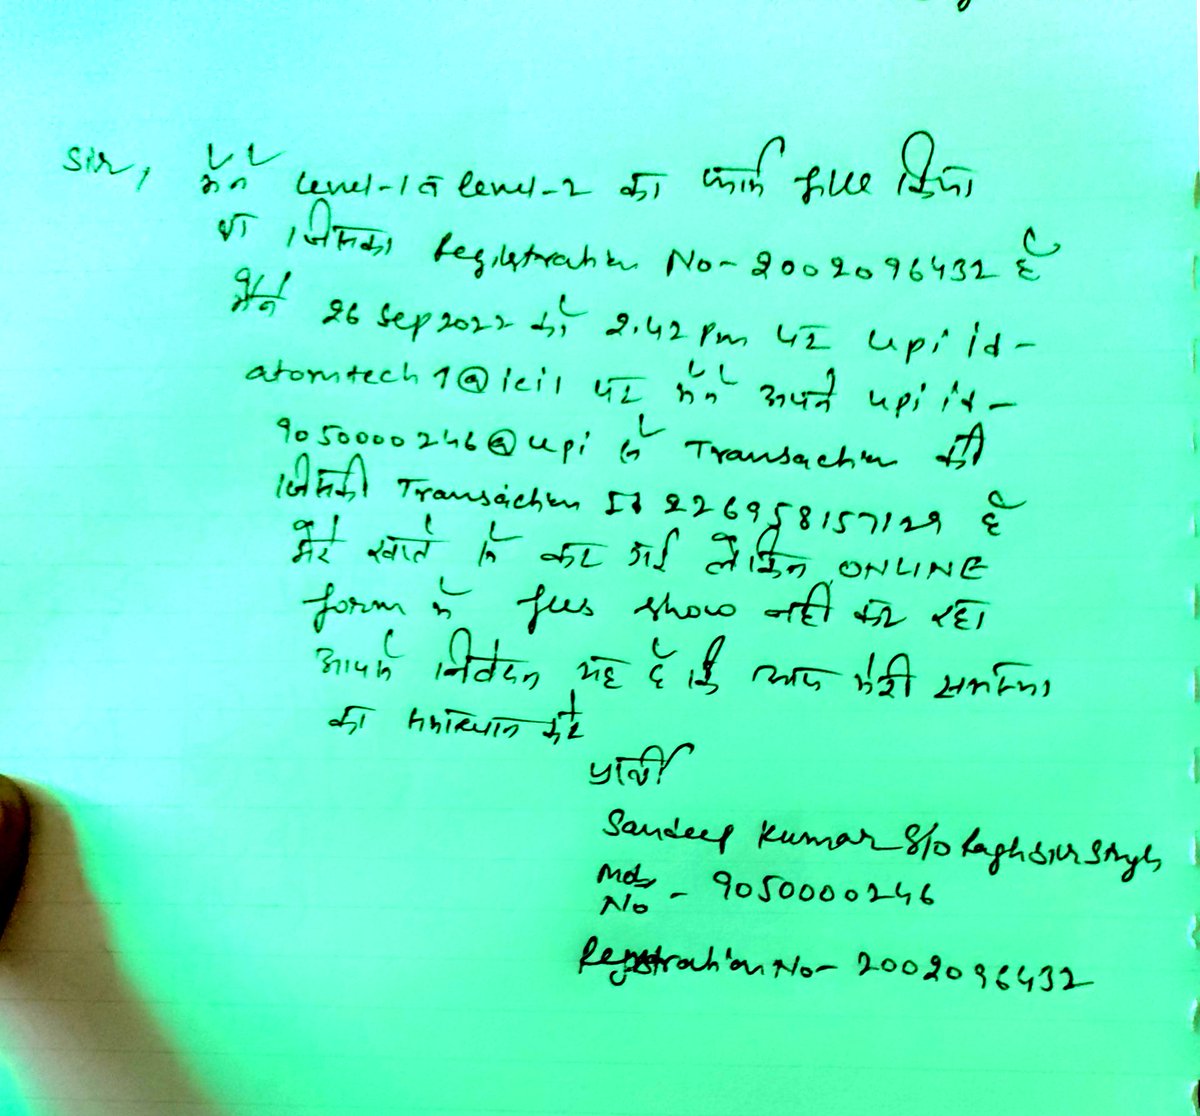 Sir, मैंने Level-1 व Level-2 का फार्म fill किया
था जिसका Registration No- 2002096432 है
मैंने 26 Sep 2022 को 2.42 Pm पर upi id-
atomtech1@icici पर मैंने अपने upi id-
9050000246@upi से Transaction की
जिसकी Transaction Id 226958157129 है
मेरे खाते से कट गई लेकिन ONLINE
form में fees show नहीं कर रहा
आपसे निवेदन यह है कि आप मेरी समस्या
का समाधान करें
प्रार्थी
Sandeep Kumar S/o Raghbir Singh
Mob
No - 9050000246
Registration No- 2002096432